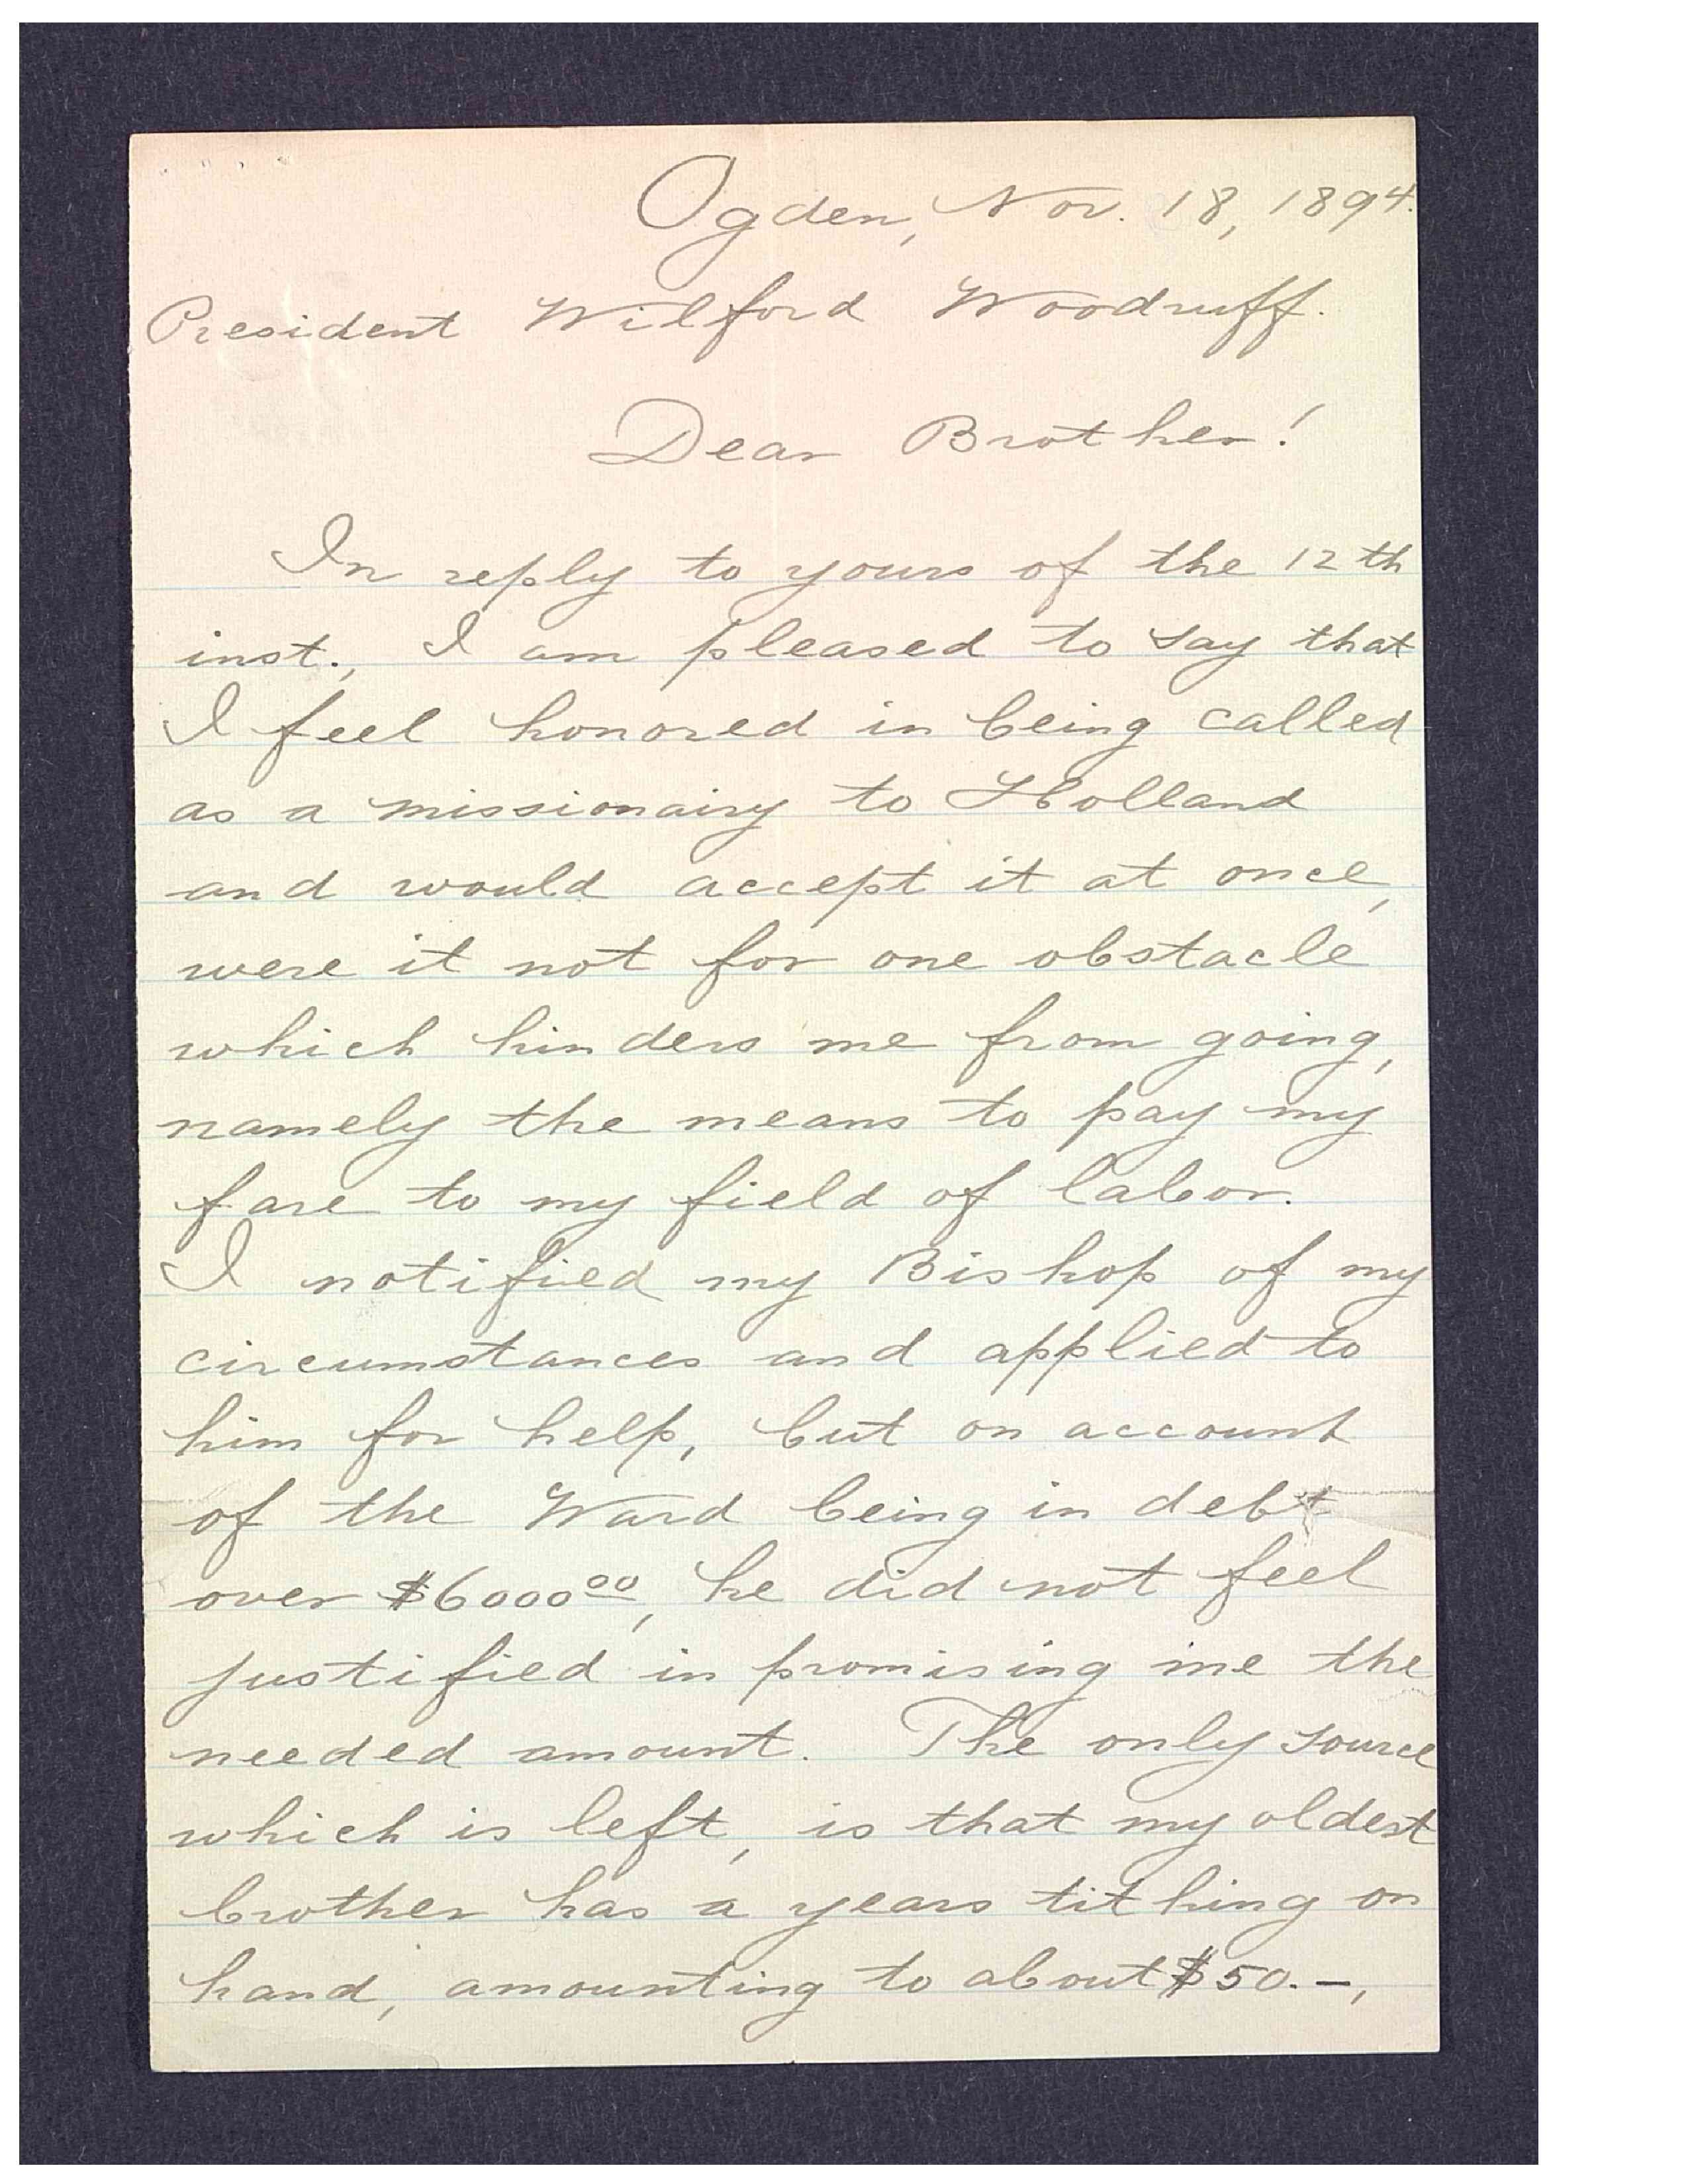 Ogden, Nov. 18, 1894.
President Wilford Woodruff.
Dear Brother!
In reply to yours of the 12th
inst., I am pleased to say that
I feel honored in being called
as a missionairy to Holland
and would accept it at once,
were it not for one obstacle
which hinders me from going,
namely the means to pay my
fare to my field of labor.
I notified my Bishop of my
circumstances and applied to
him for help, but on account
of the Ward being in debt
over $6000.00, he did not feel
justified in promising me the
needed amount. The only source
which is left, is that my oldest
brother has a years tithing on
hand, amounting to about $50.–,